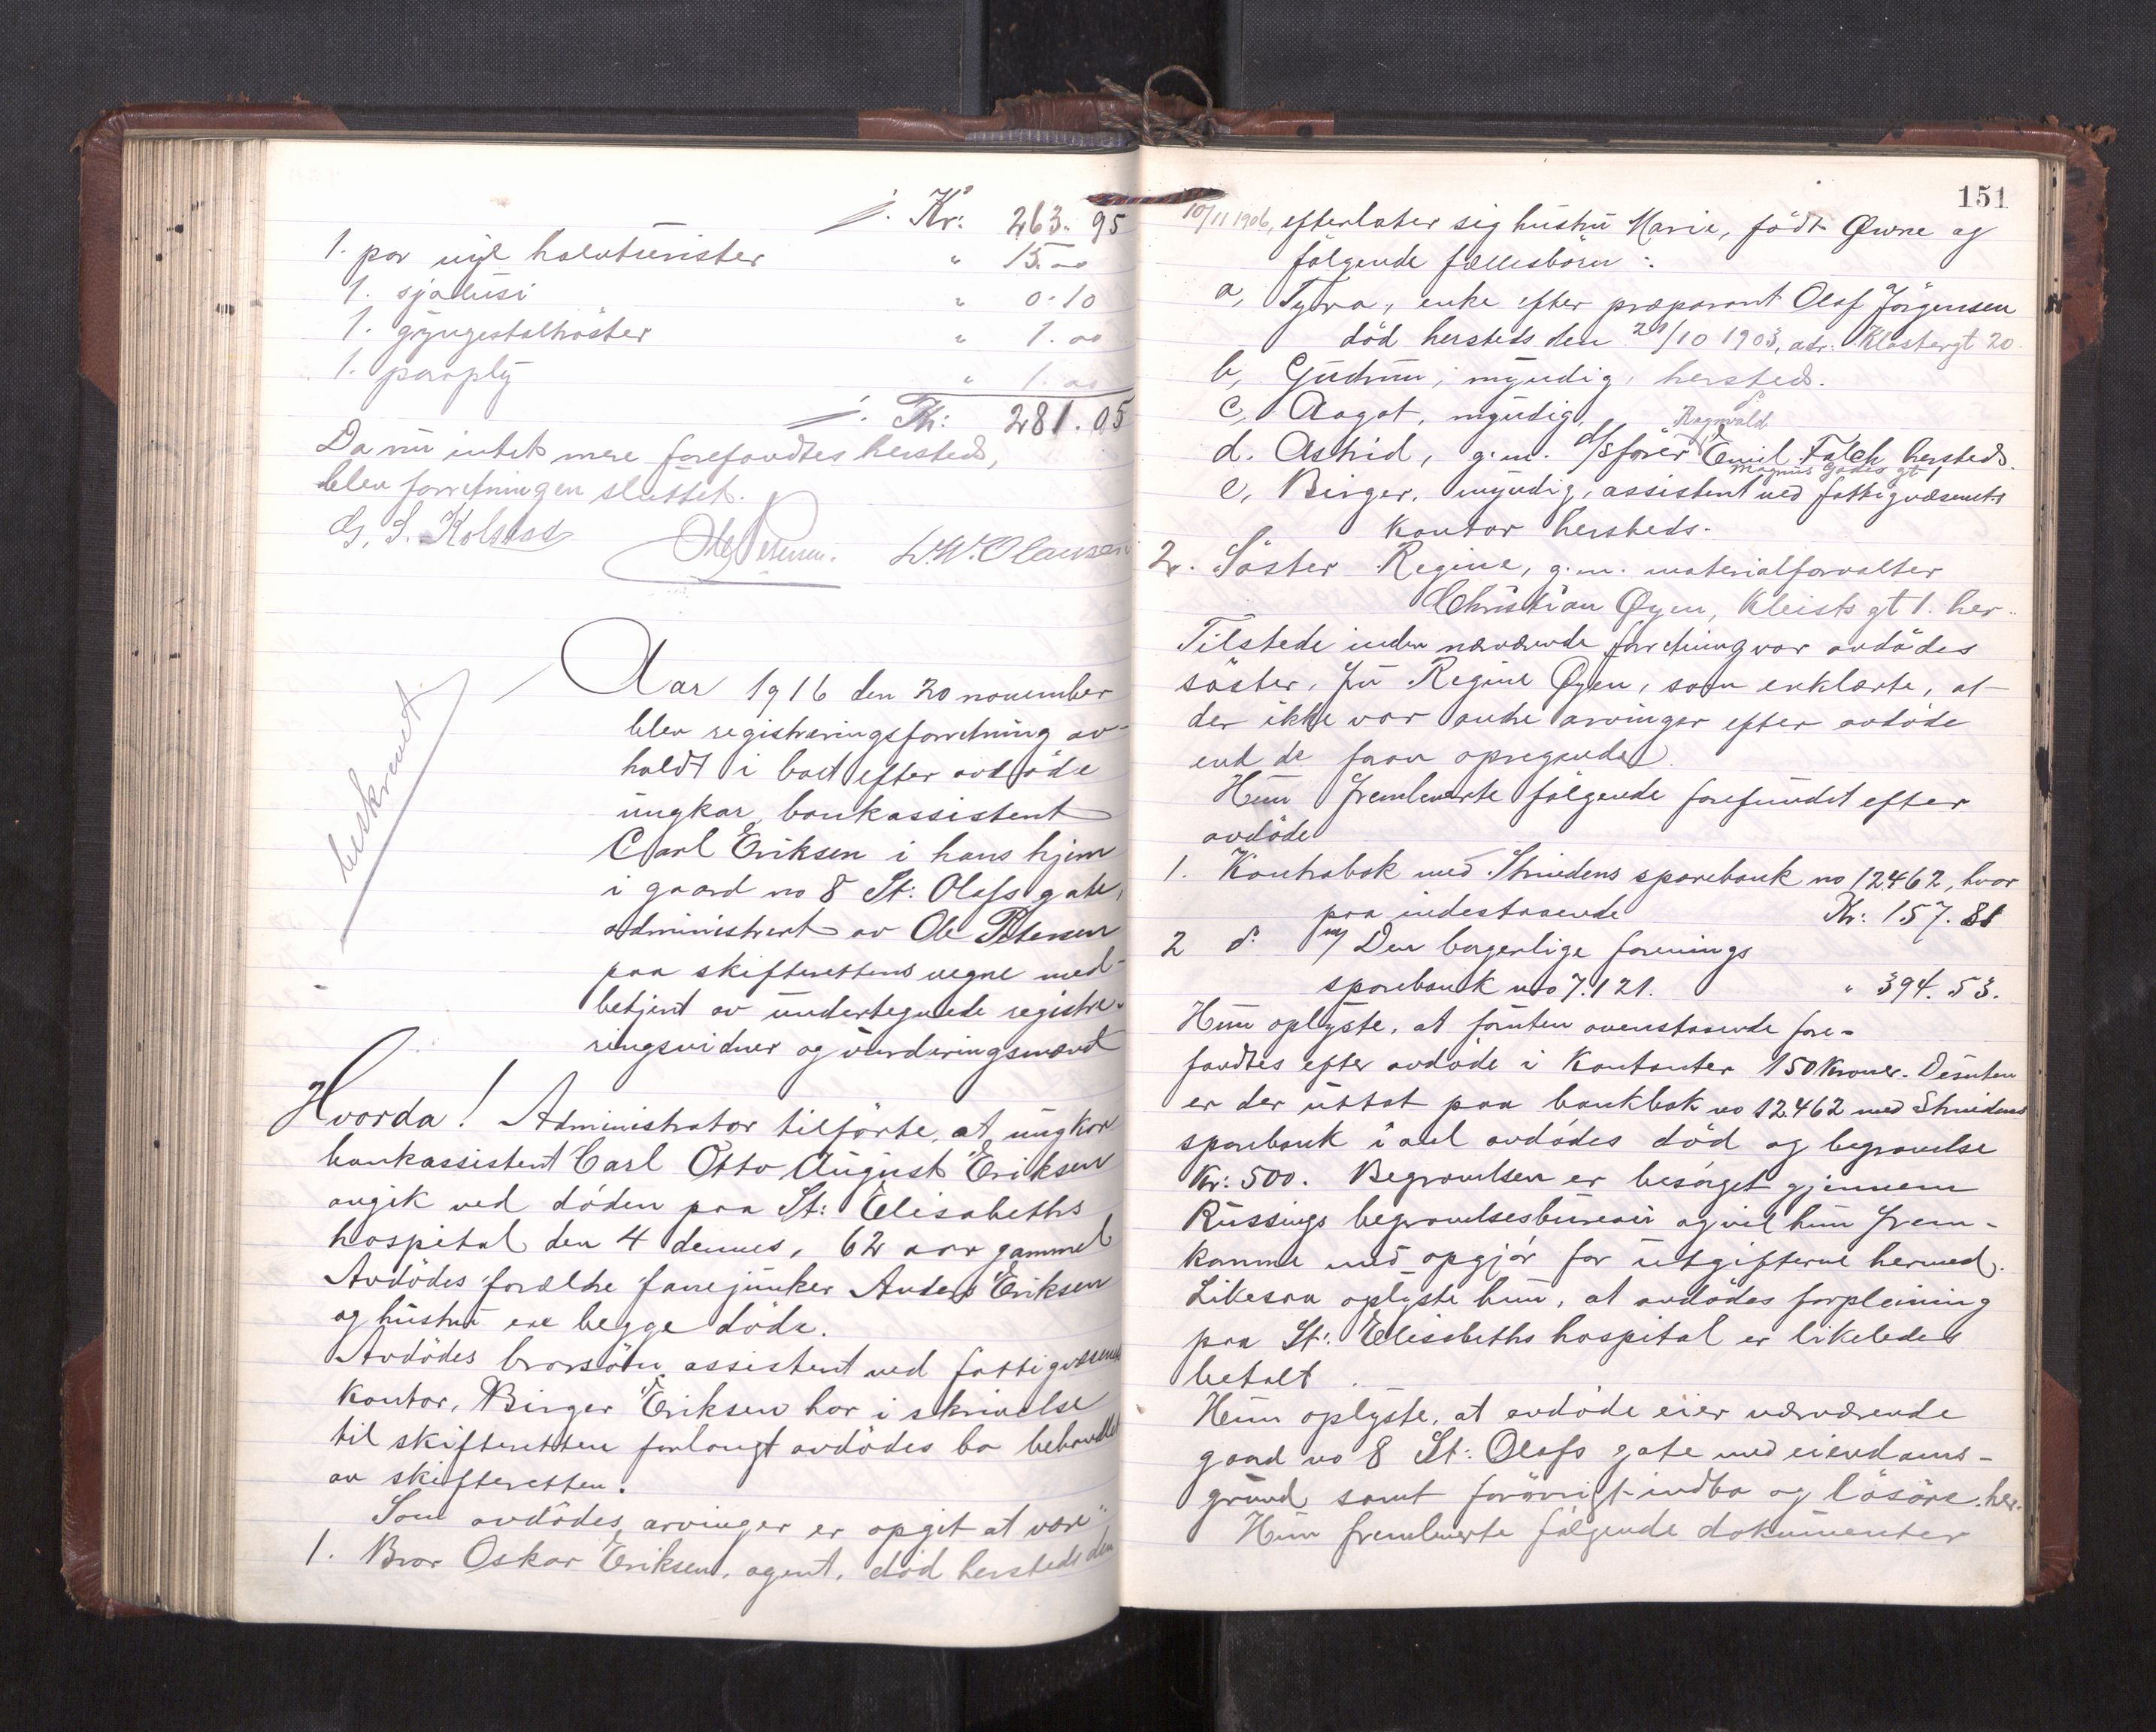 j. Kr: 263. 95
1. par nye halvtur ister " 15.00
1. sjalusi " 0.10
1. gyngestol " 1.00
1. paraply " 1.00
j. Kr: 281.05
Da nu intet mere forefandtes hersteds,
blev forretningen sluttet.
G. S. Kolstad Ole Petersen. L. W. Clausen
beskrevet
Aar 1916 den 20 november
blev registreringsforretning av-
holdt i boet efter avdøde
ungkar, bankassistent
Carl Eriksen i hans hjem
i gaard no 8 St: Olafs gate,
administrert av Ole Petersen
paa skifterettens vegne med-
betjent av undertegnede registre-
ringsvidner og vurderingsmænd
Hvorda! Administrator tilførte, at ungkar
bankassistent Carl Otto August Eriksen
avgik ved døden paa St: Elisabeths
hospital den 4 dennes, 62 aar gammel
Avdødes forældre fanejunker Anders Eriksen
og hustru ere begge døde.
Avdødes brorsøn assistent ved fattigvæsenets
kontor, Birger Eriksen har i skrivelse
til skifteretten forlangt avdødes bo behandlet
av skifteretten.
Som avdødes arvinger er opgit at være"
1. Bror Oskar Eriksen, agent, død hersteds den
151
10/11 1906, efterlater sig hustru Marie, født Øwre og
følgende fællesbørn:
a, Tyra, enke efter præparant Olaf Jørgensen
død hersteds den 21/10 1903, adr. Klostergt 20.
b, Gudrun, myndig, hersteds.
c, Aagot, myndig, d.
Ragnvald
d. Astrid, g.m. d/sfører Emil Falch hersteds.
Magnus Godes gt
e, Birger, myndig, assistent ved fattigvæsenets
kontor hersteds.
2. Søster Regine, g.m. materialforvalter
Christian Øyen, Kleists gt 1. her..
Tilstede under nærværende forretning var avdødes
søster, fru Regine Øyen, som erklærte, at
der ikke var andre arvinger efter avdøde
end de foran opregnede.
Hun fremleverte følgende forefundet efter
avdøde
1. Kontrabok med Strindens sparebank no 12462, hvor
paa indestaaende Kr: 157. 81
2 d. m/ Den borgerlige forenings
sparebank no 7.121. " 394. 53.
Hun oplyste, at foruten ovenstaaende fore-
fandtes efter avdøde i kontanter 150 kroner. Desuten
er der uttat paa bankbok no 12462 med Strindens
sparebank i anl avdødes død og begravelse
Kr: 500. Begravelsen er besørget gjennem
Russings begravelsesbureau og vil hun frem-
komme med opgjør for utgifterne hermed.
Likesaa oplyste hun, at avdødes forpleining
paa St: Elisabeths hospital er likeledes
betalt.
Hun oplyste, at avdøde eier nærværende
gaard no 8 St: Olafs gate med eiendoms-
grund samt forøvrigt indbo og løsøre her.
Hun fremleverte følgende dokumenter